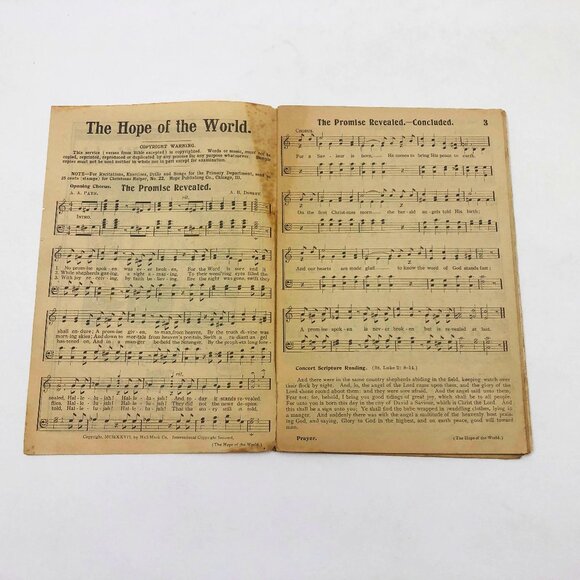 The Hope of the World.
COPYRIGHT WARNING.
This service (verses from Bible excepted) is copyrighted. Words or music, must not be
copied, reprinted, reproduced or duplicated by any process for any purpose whatsoever.
copies must not be used neither in whole nor in part except for examination.
NOTE—For Recitations, Exercises, Drills and Songs for the Primary Department, send
25 cents (stamps) for Christmas Helper, No. 22. Hope Publishing Co., Chicago, Ill.
Opening Chorus. The Promise Revealed.
A. A. PAYN. A. B.
rit.
INTRO.
1. No prom-ise spok-en was ev-er brok-en, For the Word is sure and it
2. While shepherds gaz-ing, a sight a-maz-ing, To their wond'ring eyes filled the
3. With joy re-ceiv-ing, by faith be-liev-ing,
shall en-dure; A prom-ise giv-en, to man, from heaven, By the truth di-vine was
morning skies; And down to mor-tals from heaven's portals, Swift a ra-diant an-gel
rit.
sealed, Hal-le-lu-jah! Hal-le-lu-jah! And to-day it stands re-vealed.
flies, Hal-le-lu-jah! Hal-le-lu-jah!
told, Hal-le-lu-jah! Hal-le-lu-jah! That the sto-ry still is told.
Copyright, MCMXXVI, by Hall-Mack Co. International Copyright Secured.
(The Hope of the World.)
The Promise Revealed.—Concluded. 3
CHORUS.
For a Sav-iour is born, He comes to bring His peace to earth.
On the first Christmas morn the her-ald an-gels told His birth;
And our hearts are made glad to know the word of God stands fast;
A prom-ise spok-en is nev-er brok-en but is re-vealed at last.
Concert Scripture Reading. (St. Luke 2: 8-14.)
And there were in the same country shepherds abiding in the field, keeping watch over
their flock by night. And, lo, the angel of the Lord came upon them, and the glory of the
Lord shone round about them: and they were sore afraid. And the angel said unto them,
Fear not: for, behold, I bring you good tidings of great joy, which shall be to all people.
For unto you is born this day in the city of David a Saviour, which is Christ the Lord. And
this shall be a sign unto you; Ye shall find the babe wrapped in swaddling clothes, lying in
a manger. And suddenly there was with the angel a multitude of the heavenly host praising
God, and saying, Glory to God in the highest, and on earth peace, good will toward
men.
Prayer.
(The Hope of the World.)